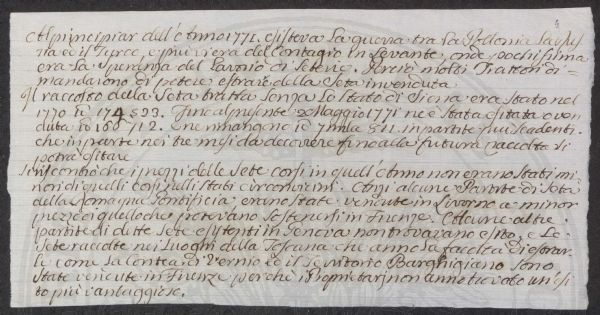 Al principiar dell'Anno 1771. esisteva la guerra tra la Pollonia la Rus
sia e il Turco, e piu vi era del Contagio in Levante, onde pochissima
era la speranza del Lavorio di Seterie. Perciò molti Trattori di=
mandarono di potere estrarre della Seta invenduta
Il raccolto della Seta tratta senza lo Stato di Siena era stato nel
1770 lb 174593. fino al presente Maggio 1771 ne è stata esitata o ven
duta lb 166712. ne rimangono lb 7mila 811. in partite piu scadenti.
che in parte nei tre mesi da decorrere fino alla futura raccolta si
potrà esitare
Si riscontrò che i prezzi delle sete corsi in quell'Anno non erano stati mi
nori di quelli corsi nelli Stati circonvicini. Anzi alcune Partite di Seta
della Romagna Pontificia, erano state vendute in Livorno a minor
prezzo di quello che potevano sostenersi in Firenze. Alcune altre
partite di dette sete esistenti in Genova non trovavano esito, e le
sete raccolte nei Luoghi della Toscana che anno la facoltà di estrar
le come la Contea di Vernio ed il Territorio Barghigiano sono
state vendute in Firenze perche i Proprietarj non anno trovato un esi
to più vantaggioso.